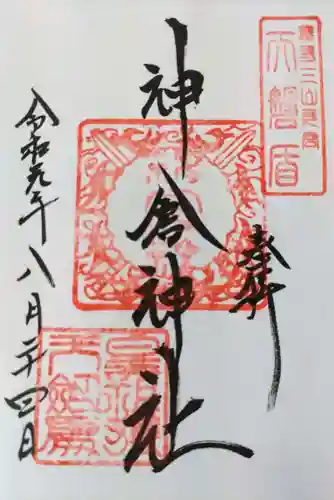 天磐盾
奉拝
神倉神社
令和元年八月二十四日